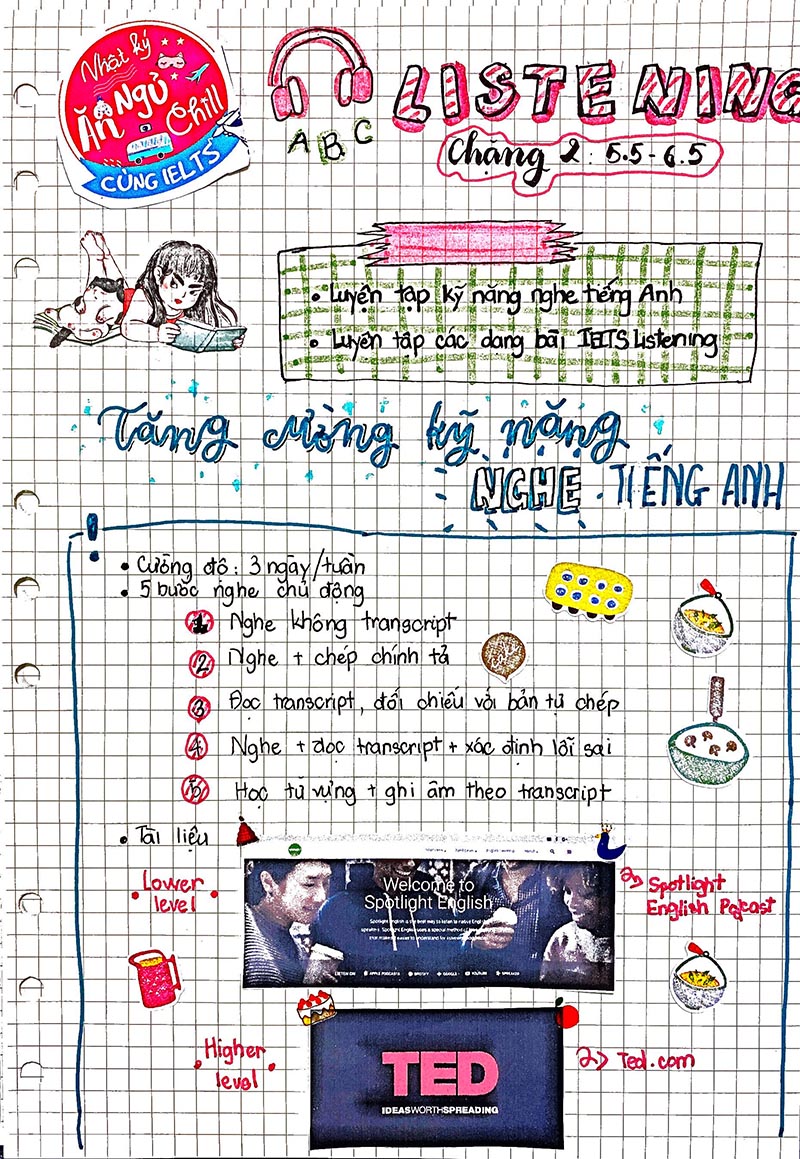 Nhật ký
Ăn NGỦ
Chill
CÙNG IELTS
ABC
LISTENING
Chặng 2: 5.5 - 6.5
• Luyện tập kỹ năng nghe tiếng Anh
• Luyện tập các dạng bài IELTS Listening
Tăng cường kỹ nặng
NGHE TIẾNG ANH
• Cường độ: 3 ngày/tuần
• 5 bước nghe chủ động
1 Nghe không transcript
2 Nghe + chép chính tả
3 Đọc transcript, đối chiếu với bản tự chép
4 Nghe + đọc transcript + xác định lỗi sai
5 Học từ vựng + ghi âm theo transcript
• Tài liệu
• Lower level •
Welcome to
Spotlight English
Spotlight English is the best way to listen to native English
LISTEN ON APPLE PODCASTS SPOTIFY GOOGLE YOUTUBE SPREAKER
Spotlight
English Podcast
• Higher level •
TED
IDEAS WORTH SPREADING
Ted.com